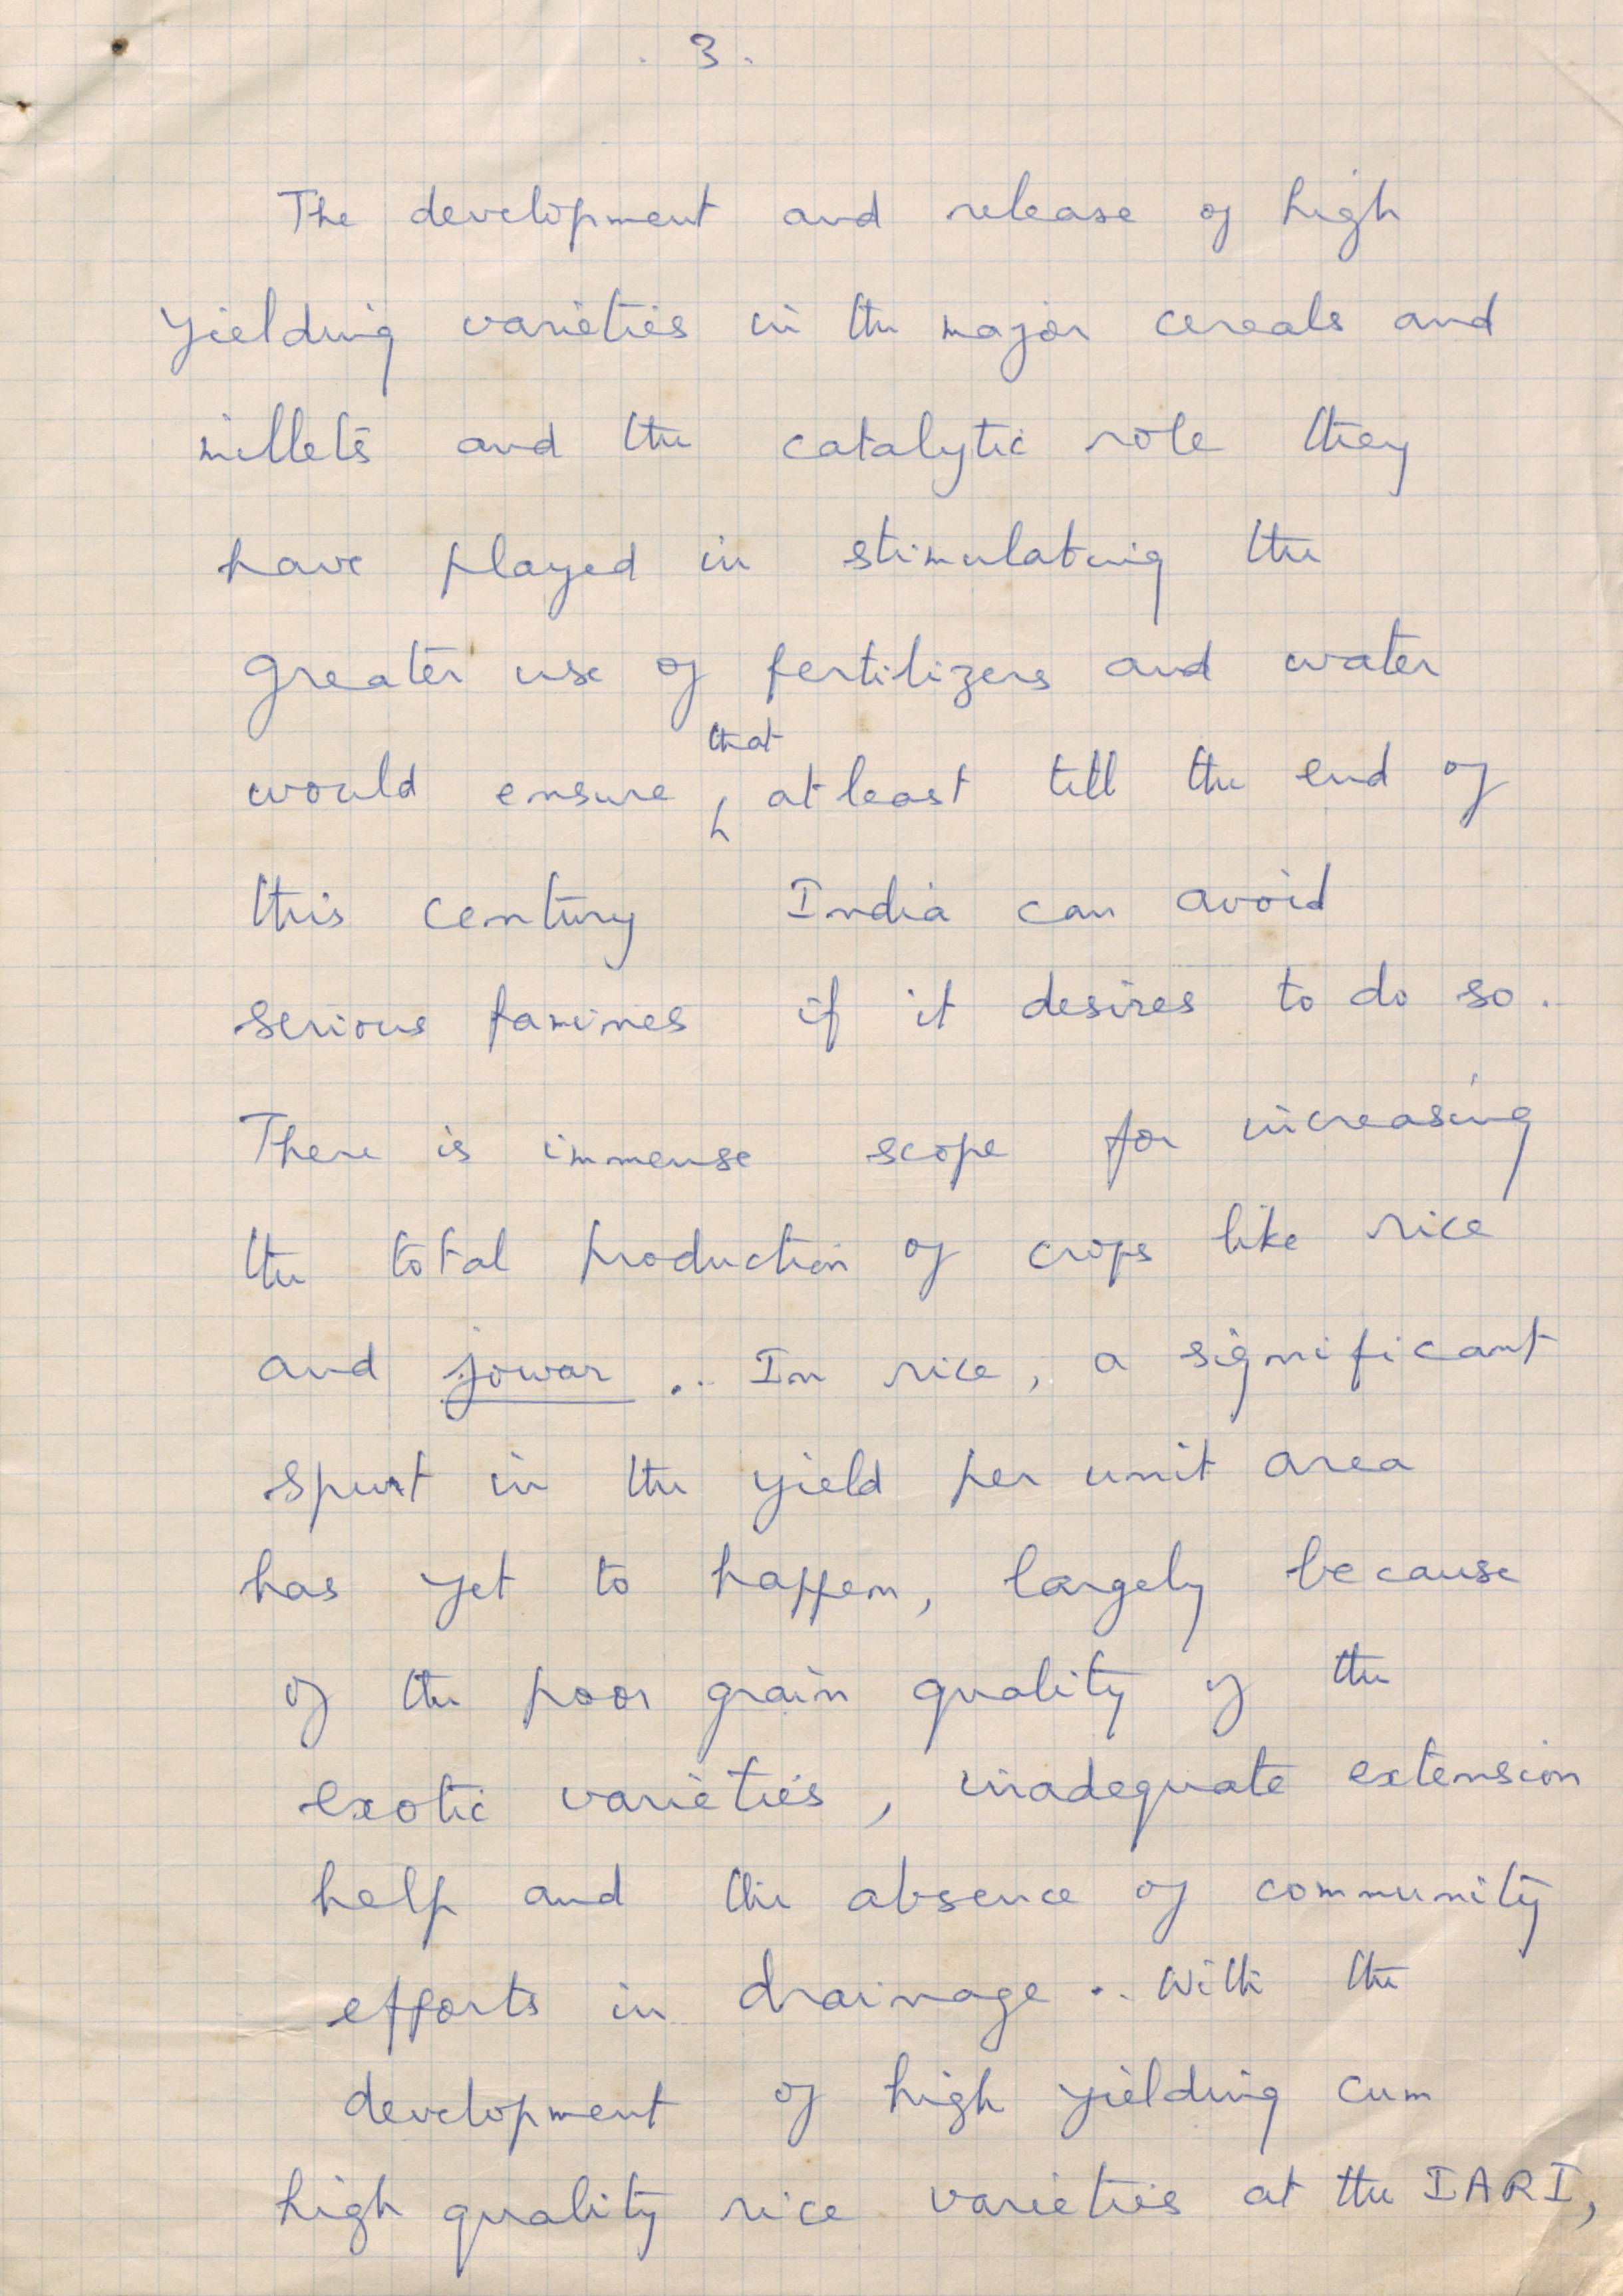 . 3 .
The development and release of high
yielding varieties in the major cereals and
millets and the catalytic role they
have played in stimulating the
greater use of fertilizers and water
that
would ensure, atleast till the end of
this century India can avoid
serious famines if it desires to do so.
There is immense scope for increasing
the total production of crops like rice
and jowar .. In rice, a significant
spurt in the yield per unit area
has yet to happen, largely because
of the poor grain quality of the
exotic varieties, inadequate extension
help and the absence of community
efforts in drainage .. With the
development of high yielding cum
high quality rice varieties at the IARI,